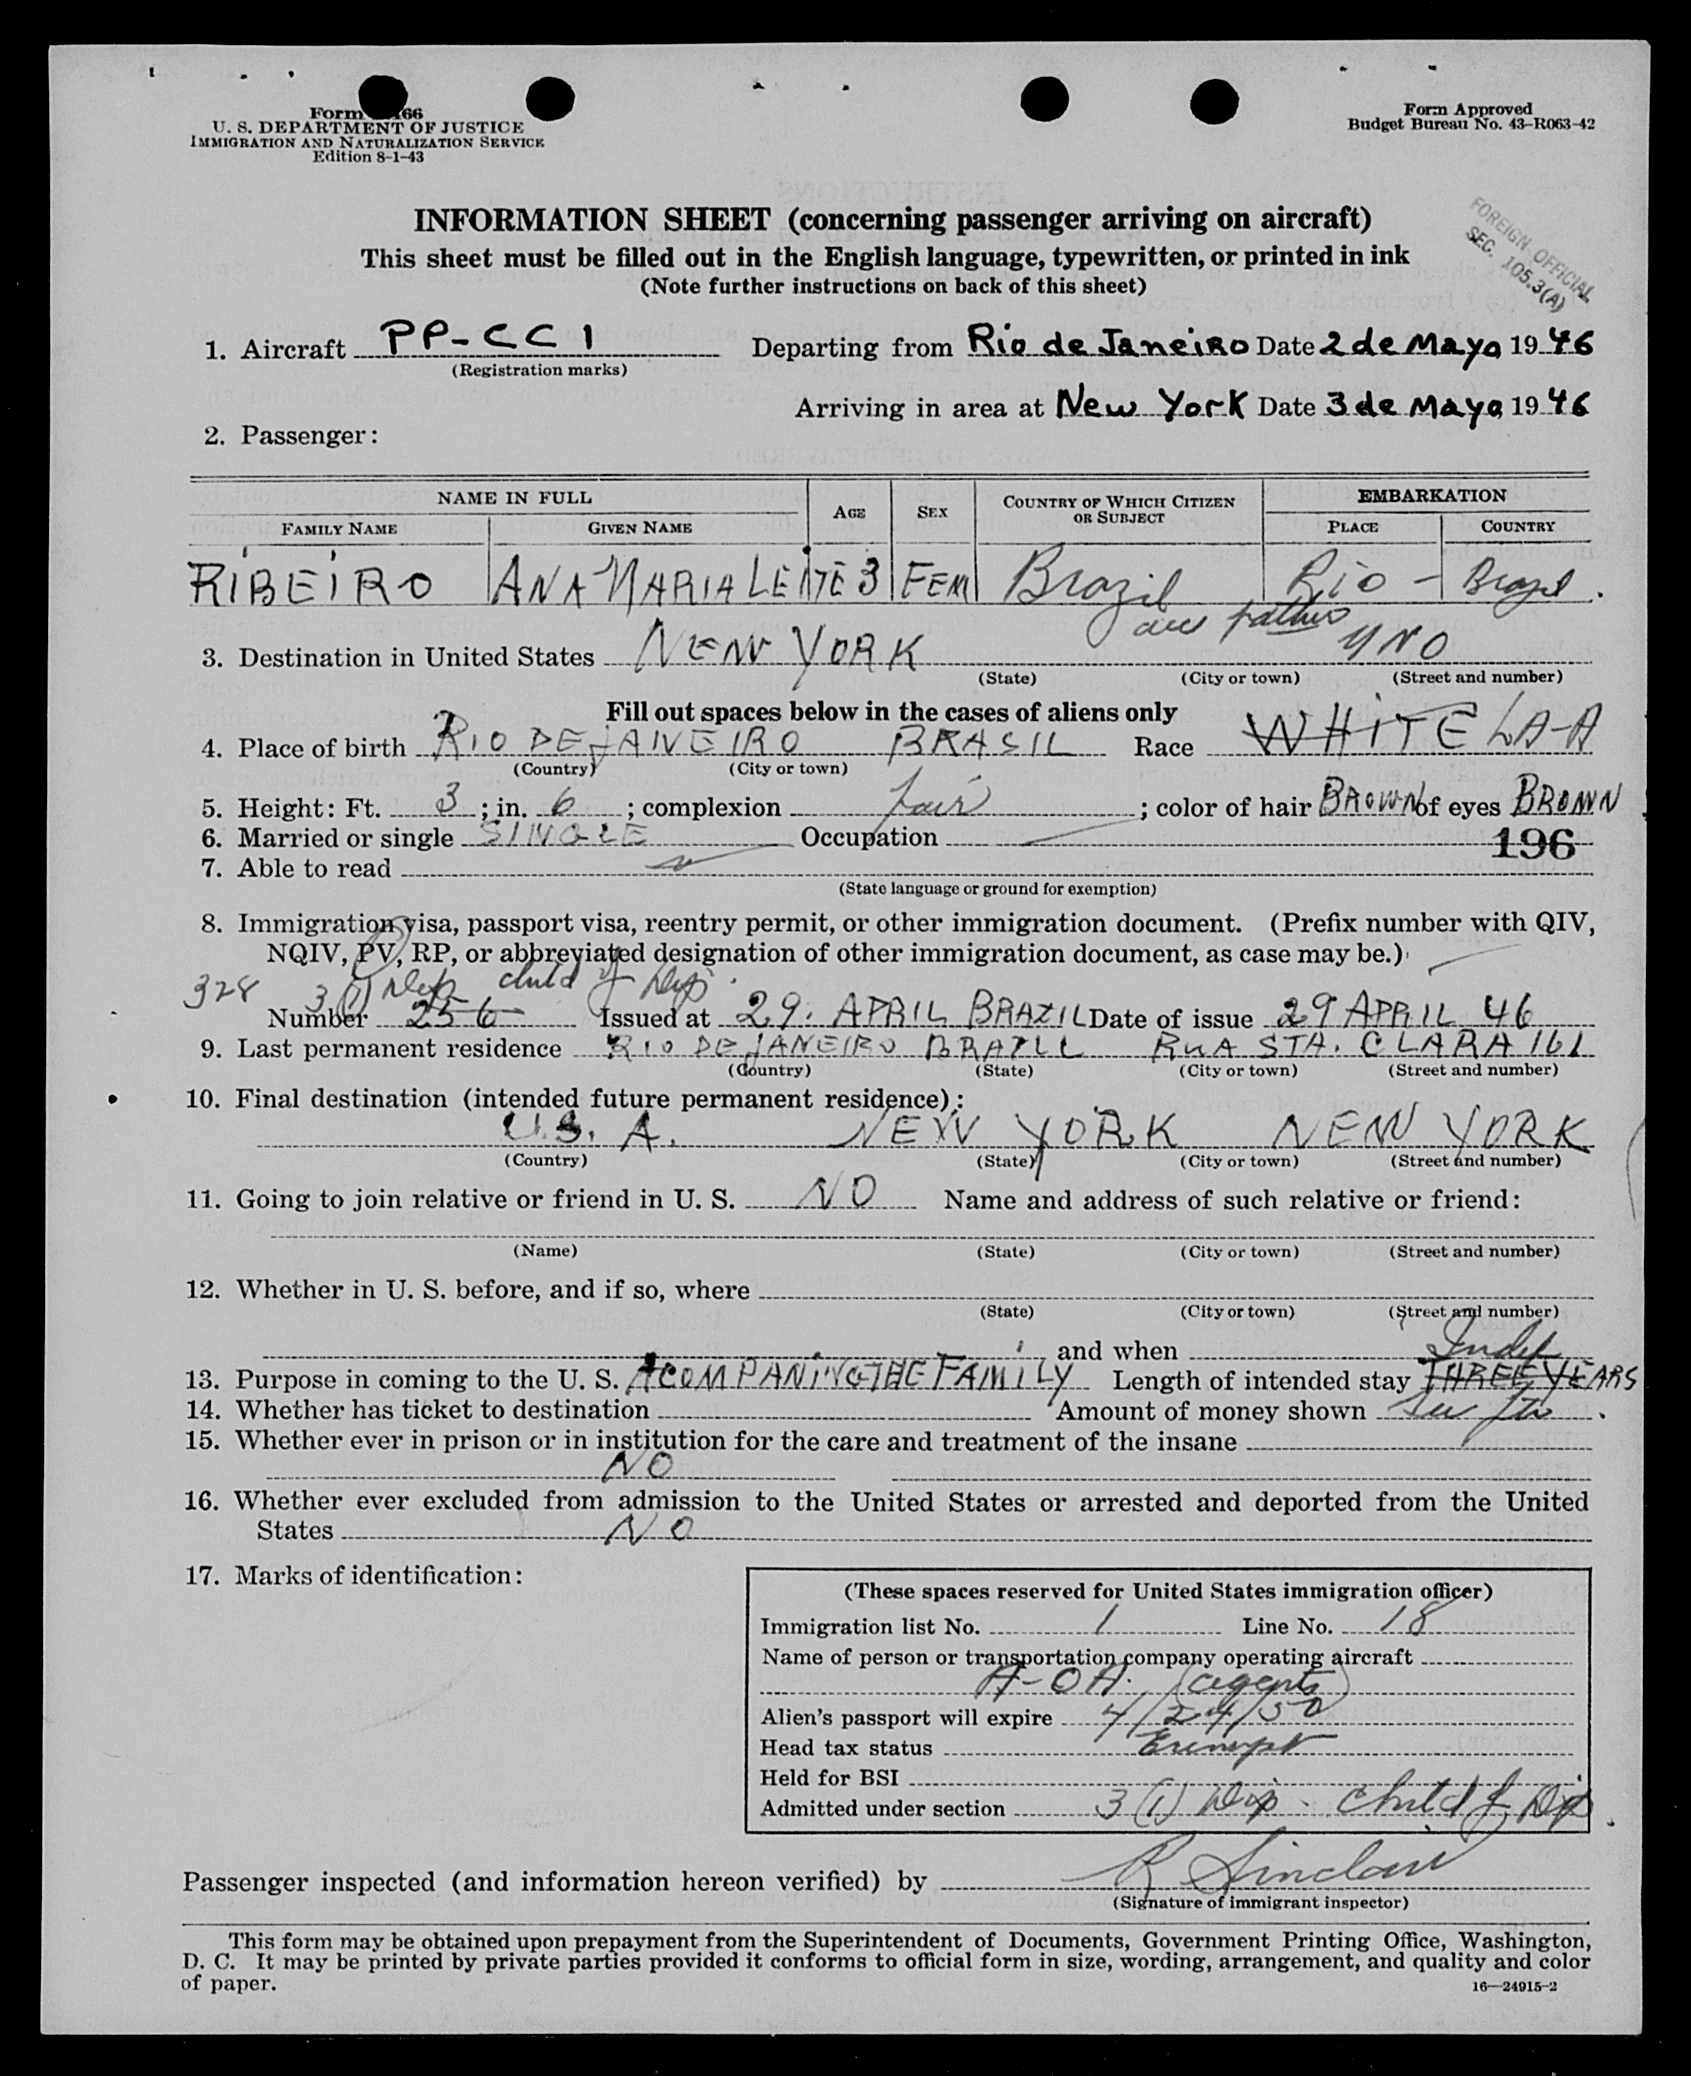 Form 66
U. S. DEPARTMENT OF JUSTICE
IMMIGRATION AND NATURALIZATION SERVICE
Edition 8-1-43
Form Approved
Budget Bureau No. 43-R063-42
INFORMATION SHEET (concerning passenger arriving on aircraft)
This sheet must be filled out in the English language, typewritten, or printed in ink
(Note further instructions on back of this sheet)
FOREIGN OFFICIAL
SEC. 105.3(A)
1. Aircraft PP-CC1 Departing from Rio de Janeiro Date 2 de Mayo 1946
(Registration marks)
Arriving in area at New York Date 3 de Mayo 1946
2. Passenger:
NAME IN FULL AGE SEX COUNTRY OF WHICH CITIZEN OR SUBJECT EMBARKATION
FAMILY NAME GIVEN NAME PLACE COUNTRY
RIBEIRO ANA MARIA LEITE 3 FEM Brazil Rio - Brazil
3. Destination in United States NEW YORK YNO
(State) (City or town) (Street and number)
Fill out spaces below in the cases of aliens only
4. Place of birth RIO DE JANEIRO BRASIL Race WHITE LA-A
(Country) (City or town)
5. Height: Ft. 3; in. 6; complexion fair; color of hair BROWN of eyes BROWN
6. Married or single SINGLE Occupation
196
7. Able to read
(State language or ground for exemption)
8. Immigration visa, passport visa, reentry permit, or other immigration document. (Prefix number with QIV,
NQIV, PV, RP, or abbreviated designation of other immigration document, as case may be.)
328 3(1) Dip child of Dip.
Number 256 Issued at 29. APRIL BRAZIL Date of issue 29 APRIL 46
9. Last permanent residence RIO DE JANEIRO BRAZIL RUA STA. CLARA 161
(Country) (State) (City or town) (Street and number)
10. Final destination (intended future permanent residence):
U.S. A. NEW YORK NEW YORK
(Country) (State) (City or town) (Street and number)
11. Going to join relative or friend in U. S. NO Name and address of such relative or friend:
(Name) (State) (City or town) (Street and number)
12. Whether in U. S. before, and if so, where
(State) (City or town) (Street and number)
and when
Indef
13. Purpose in coming to the U. S. ACOMPANING THE FAMILY Length of intended stay THREE YEARS
14. Whether has ticket to destination Amount of money shown
15. Whether ever in prison or in institution for the care and treatment of the insane
NO
16. Whether ever excluded from admission to the United States or arrested and deported from the United
States NO
17. Marks of identification:
(These spaces reserved for United States immigration officer)
Immigration list No. 1 Line No. 18
Name of person or transportation company operating aircraft
A-OA. (agents)
Alien's passport will expire 4/24/50
Head tax status Exempt
Held for BSI
Admitted under section 3(1) Dip - Child of Dip.
Passenger inspected (and information hereon verified) by R Sinclair
(Signature of immigrant inspector)
This form may be obtained upon prepayment from the Superintendent of Documents, Government Printing Office, Washington,
D. C. It may be printed by private parties provided it conforms to official form in size, wording, arrangement, and quality and color
of paper.
16—24915-2